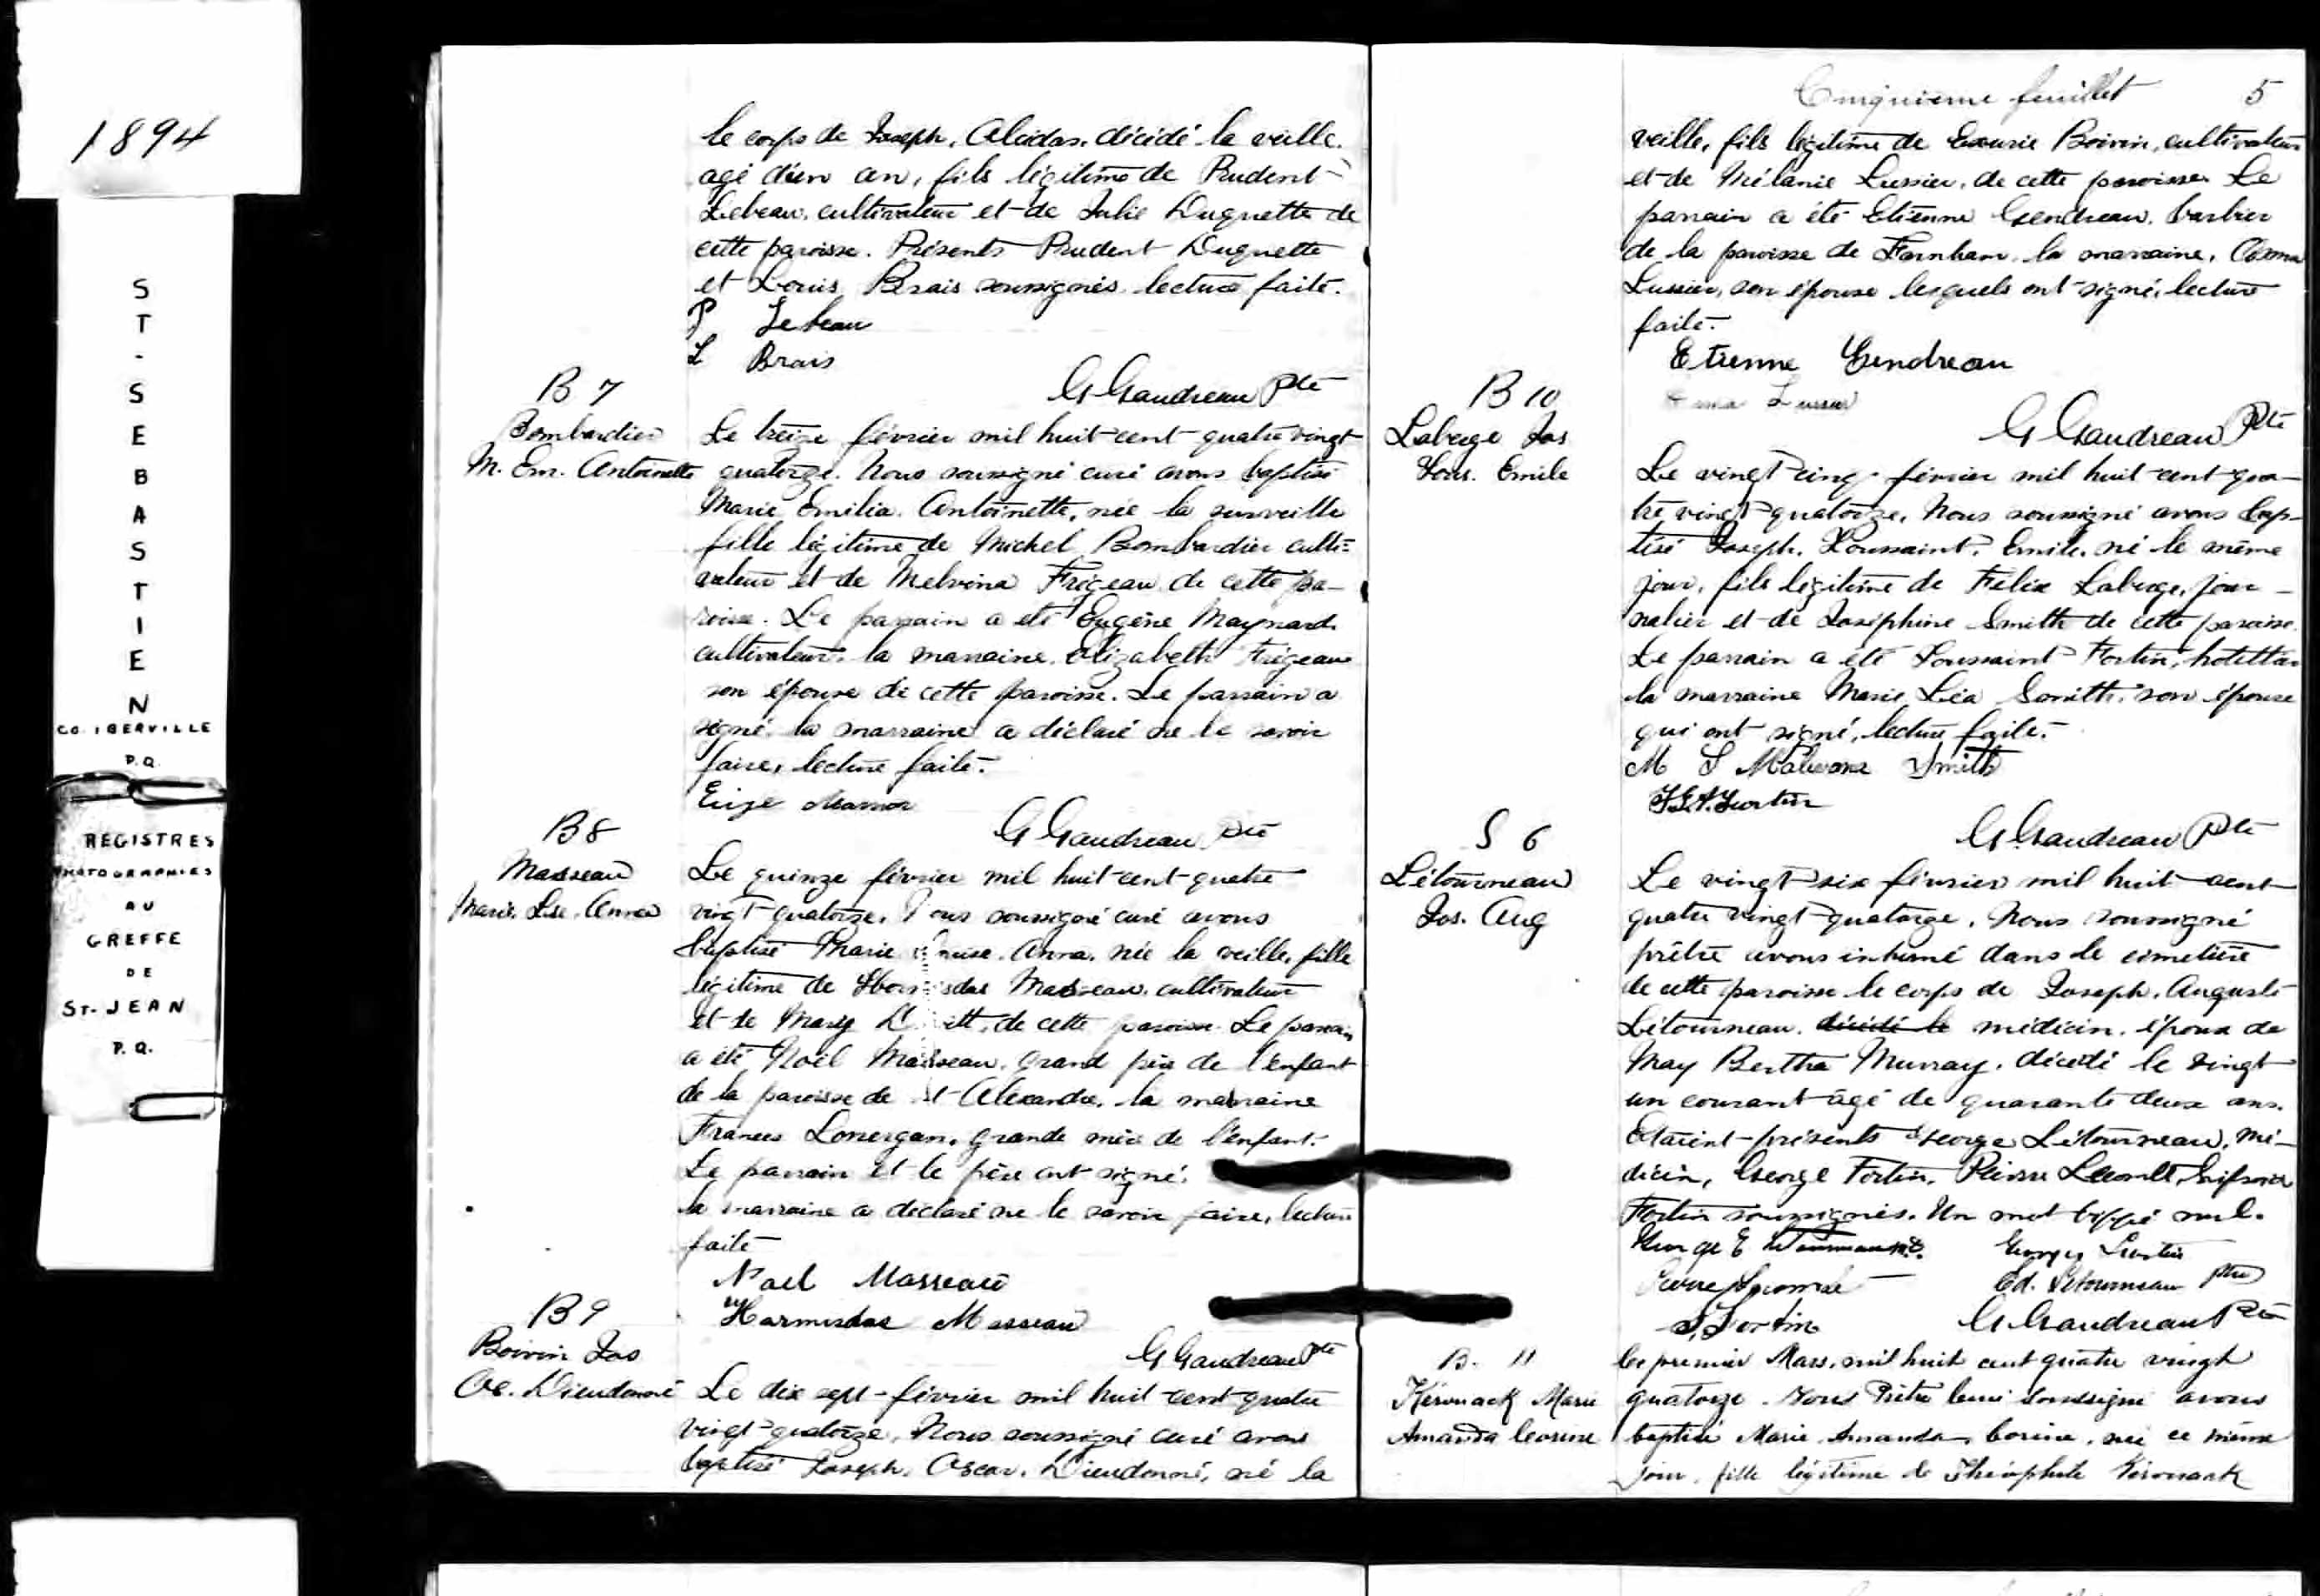 1894
ST-SEBASTIEN
CO. IBERVILLE
P.Q.
REGISTRES
PHOTOGRAPHIES
AU
GREFFE
DE
ST-JEAN
P.Q.
le corps de Joseph, Alcidas, décédé la veille
agé d'un an, fils légitime de Prudent
Lebeau, cultivateur et de Julie Duquette de
cette paroisse. Présents Prudent Duquette
et Louis Brais soussignés lecture faite.
P Lebeau
L Brais
G Gaudreau Ptre
B 7
Bombardier
M. Em. Antoinette
Le treize février mil huit cent quatre vingt
quatorze. Nous soussigné curé avons baptisé
Marie Emilia Antoinette, née la surveille
fille légitime de Michel Bombardier culti=
vateur et de Melvina Frégeau de cette pa-
roisse. Le parrain a été Eugène Maynard
cultivateur, la marraine Elizabeth Frégeau
son épouse de cette paroisse. Le parrain a
signé la marraine a déclaré ne le savoir
faire, lecture faite.
G Gaudreau Ptre
B8
Masseau
Marie Lse. Anna
Le quinze février mil huit cent quatre
vingt quatorze. Nous soussigné curé avons
baptisé Marie Anna, née la veille, fille
légitime de Hormisdas Masseau, cultivateur
et de Mary de cette paroisse. Le parrain
a été Noël Masseau, grand père de l'enfant
de la paroisse de St Alexandre, la marraine
Frances Lonergan, grande mère de l'enfant.
Le parrain et le père ont signé.
la marraine a déclaré ne le savoir faire, lecture
faite
Noel Masseau
Hormisdas Masseau
G Gaudreau Ptre
B9
Boivin Jos
Os. Dieudonné
Le dix sept février mil huit cent quatre
vingt quatorze, Nous soussigné curé avons
baptisé Joseph, Oscar, Dieudonné, né la
Cinquième feuillet 5
veille, fils légitime de Boivin, cultivateur
et de Mélanie Lussier, de cette paroisse. Le
parrain a été Etienne Gendreau, barbier
de la paroisse de Farnham, la marraine,
Lussier, son épouse lesquels ont signé, lecture
faite.
Etienne Gendreau
Lussier
G Gaudreau Ptre
B 10
Laberge Jos
Tous. Emile
Le vingt cinq février mil huit cent qua-
tre vingt quatorze, Nous soussigné avons bap-
tisé Joseph, Toussaint, Emile, né le même
jour, fils légitime de Félix Laberge, jour-
nalier et de Joséphine Smith de cette paroisse.
Le parrain a été Toussaint Fortin, hotellier
la marraine Marie Léa Smith, son épouse
qui ont signé, lecture faite.
M Smith
G Gaudreau Ptre
S 6
Létourneau
Jos. Aug
Le vingt six février mil huit cent
quatre vingt quatorze. Nous soussigné
prêtre avons inhumé dans le cimetière
de cette paroisse le corps de Joseph, Auguste
Létourneau, décédé le médecin, époux de
May Bertha Murray, décédé le vingt
un courant âgé de quarante deux ans.
Etaient présents George Létourneau, mé-
decin, George Fortin, Pierre Lecomte,
Fortin soussignés. Un mot biffé nul.
George E Létourneau M.D.
Georges Fortin
Pierre Lecomte
Ed. Létourneau Ptre
S. Fortin
G Gaudreau Ptre
B. 11
Kérouack Marie
Amanda Corinne
Le premier Mars, mil huit cent quatre vingt
quatorze. Nous Prêtre Curé soussigné avons
baptisé Marie Amanda Corine, née ce même
jour, fille légitime de Théophile Kérouack